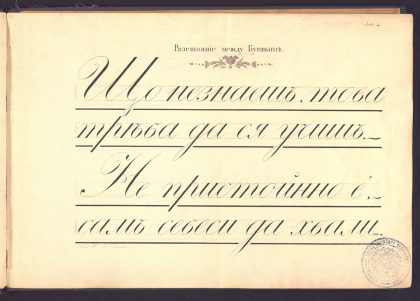 Разстояніе между Буквытѣ.
Що незнаешъ, това
трѣба да ся учишъ._
Не пристойнно é
самъ себеси да хвали._